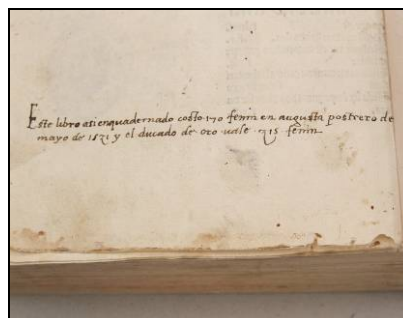 Este libro asi enquadernado costo 170 fenin en augusta postrero de
mayo de 1521 y el ducado de oro vale 315 fenin